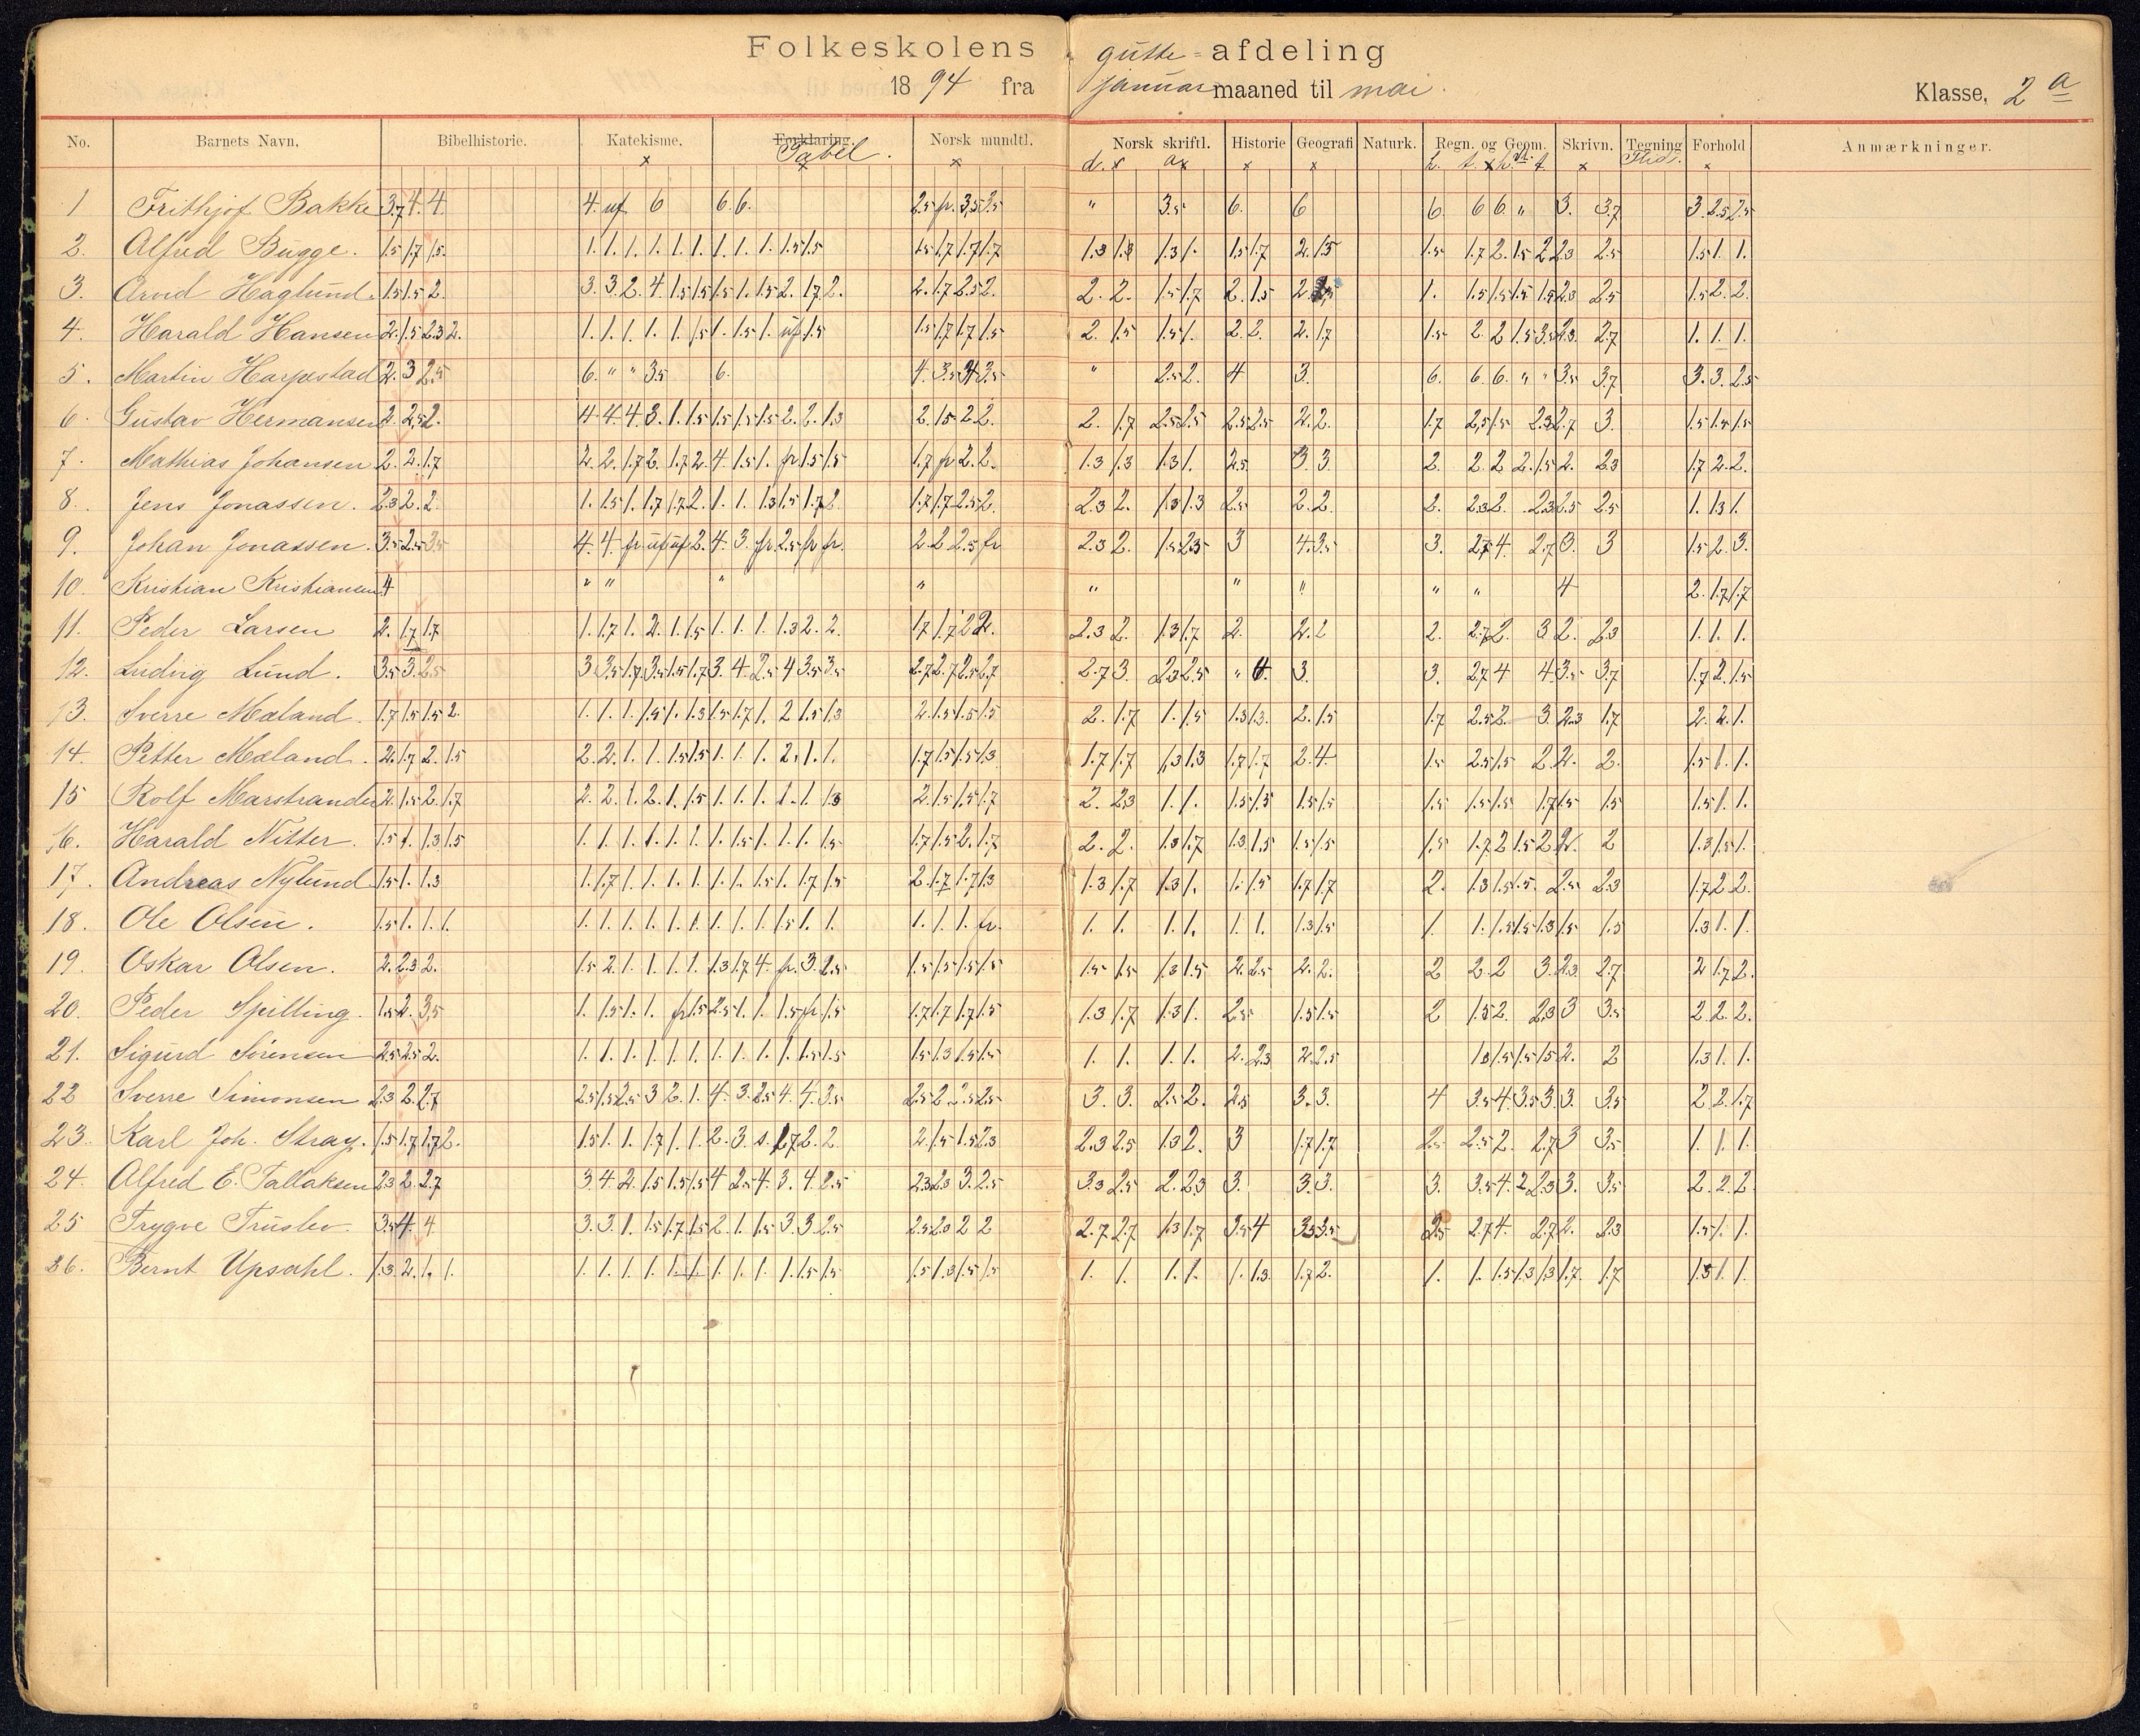 Folkeskolens gutte-afdeling
1894 fra januar maaned til mai. Klasse, 2 a
No. Barnets Navn. Bibelhistorie. Katekisme. Forklaring. Norsk mundtl. Norsk skriftl. Historie Geografi Naturk. Regn. og Geom. Skrivn. Tegning Forhold Anmærkninger.
x Tabel. x d. x a x x x x Flid. x
1 Frithjof Bakke 3.7 4. 4. 4. uf 6 6. 6. 2.5 fr. 3.5 2.5 " 3.5 6. 6 6. 6 6. " 3. 3.7 3 2.5 2.5
2. Alfred Bugge. 1.5 1.7 1.5 1. 1. 1. 1. 1. 1. 1. 1. 1. 1.5 1.5 1.5 1.7 1.7 1.7 1.3 1.3 1.3 1. 1.5 1.7 2. 1.5 1.5 1.7 2. 1.5 2 2.3 2.5 1.5 1. 1.
3. Arvid Haglund. 1.5 1.5 2. 3. 3. 2. 4. 1.5 1.5 1.5 1. 1.5 2. 1.7 2. 2. 1.7 2.5 2. 2. 2. 1.5 1.7 2. 1.5 1. 1.5 1.5 1.5 1.5 2.3 2.5 1.5 2. 2.
4. Harald Hansen 2. 1.5 2.3 2. 1. 1. 1. 1. 1. 1.5 1. 1.5 1. uf 1.5 1.5 1.7 1.7 1.5 2. 1.5 1.5 1. 2. 2. 2. 1.7 1.5 2. 2 1.5 3.5 2.3. 2.7 1. 1. 1.
5. Martin Harpestad 2. 3 2.5 6. " " 3.5 6. 4. 3.5 3.5 " 2.5 2. 4 3. 6. 6. 6. " " 3.5 3.7 3. 3. 2.5
6. Gustav Hermansen 2. 2.5 2. 4. 4. 4. 3. 1. 1.5 1.5 1.5 1.5 2. 2. 1.3 2. 1.5 2. 2. 2. 1.7 2.5 2.5 2.5 2.5 2. 2. 1.7 2.5 1.5 2.3 2.7 3. 1.5 1.5 1.5
7. Mathias Johansen 2. 2. 1.7 2. 2. 1.7 2. 1.7 2. 4. 1.5 1. fr 1.5 1.5 1.7 fr 2. 2. 1.3 1.3 1.3 1. 2.5 3. 3. 2. 2. 2 2. 1.5 2. 2.3 1.7 2. 2.
8. Jens Jonassen. 2.3 2. 2. 1. 1.5 1. 1.7 1.7 2. 1. 1. 1.3 1.5 1.7 2 1.7 1.7 2.5 2. 2.3 2. 1.3 1.3 2.5 2. 2. 2. 2.3 2. 2.3 2.5 2.5 1. 1.3 1.
9. Johan Jonassen. 3.5 2.5 3.5 4. 4. fr uf uf 2. 4. 3. fr. 2.5 fr fr. 2. 2. 2.5 fr 2.3 2. 1.5 2.5 3 4. 3.5 3. 2.7 4. 2.7 3. 3 1.5 2. 3.
10. Kristian Kristiansen 4 " " " " " " " " " 4 2. 1.7 1.7
11. Peder Larsen 2. 1.7 1.7 1. 1.7 1. 2. 1. 1.5 1. 1. 1. 1.3 2. 2. 1.7 1.7 2 2. 2.3 2. 1.3 1.7 2. 2. 2 2. 2.7 2. 3 2. 2.3 1. 1. 1.
12. Ludvig Lund. 3.5 3. 2.5 3. 3.5 1.7 3.5 1.5 1.7 3. 4. 2.5 4 3.5 3.5 2.7 2.7 2.5 2.7 2.7 3. 2.3 2.5 " 4. 3. 3. 2.7 4 4. 3.5 3.7 1.7 2. 1.5
13. Sverre Mæland. 1.7 1.5 1.5 2. 1. 1. 1. 1.5 1. 1.3 1.5 1.7 1. 2 1.5 1.3 2. 1.5 1.5 1.5 2. 1.7 1. 1.5 1.3 1.3. 2. 1.5 1.7 2.5 2. 3. 2.3 1.7 2. 2. 1.
14. Petter Mæland. 2. 1.7 2. 1.5 2. 2. 1. 1. 1.5 1.5 1. 1. 1. 2. 1. 1. 1.7 1.5 1.5 1.3 1.7 1.7 1.3 1.3 1.7 1.7 2. 4. 1.5 2.5 1.5 2. 2. 2. 1.5 1. 1.
15 Rolf Marstrander 2. 1.5 2. 1.7 2. 2. 1. 2. 1. 1.5 1. 1. 1. 1. 1. 1.3 2. 1.5 1.5 1.7 2. 2.3 1. 1. 1.5 1.5 1.5 1.5 1.5 1.5 1.5 1.7 1.5 1.5 1.5 1. 1.
16. Harald Nitter. 1.5 1. 1.3 1.5 1. 1. 1. 1. 1. 1. 1. 1.5 1. 1. 1. 1.5 1.7 1.5 2. 1.7 2. 2. 1.3 1.7 1.3 1.5 1.5 1.5 1.5 1.7 2 1.5 2 2. 2 1.3 1.5 1.
17. Andreas Nylund 1.5 1. 1.3 1. 1.7 1. 1. 1. 1. 1. 1. 1.5 1. 1.7 1.5 2. 1.7 1.7 1.3 1.3 1.7 1.3 1. 1. 1.5 1.7 1.7 2. 1.3 1.5 1.5. 2.5 2.3 1.7 2 2.
18. Ole Olsen. 1.5 1. 1. 1. 1. 1. 1. 1. 1. 1. 1. 1. 1. 1.5 1. 1. 1. 1. 1. fr. 1. 1. 1. 1. 1. 1. 1.3 1.5 1 1. 1.5 1.5 1.3 1.5 1.5 1.3 1. 1.
19. Oskar Olsen. 2. 2.3 2. 1.5 2. 1. 1. 1. 1. 1.3 1.7 4. fr. 3. 2.5 1.5 1.5 1.5 1.5 1.5 1.5 1.3 1.5 2. 2.5 2. 2. 2 2. 2 3. 2.3 2.7 2 1.7 2.
20. Peder Spilling. 1.5 2. 3.5 1. 1.5 1. 1. fr 1.5 2.5 1. 1. 1.5 fr 1.5 1.7 1.7 1.7 1.5 1.3 1.7 1.3 1. 2.5 1.5 1.5 2 1.5 2. 2.3 3 3.5 2. 2. 2.
21. Sigurd Sörensen 2.5 2.5 2. 1. 1. 1. 1. 1. 1. 1. 1. 1. 1. 1.5 1.5 1.5 1.3 1.5 1.5 1. 1. 1. 1. 2. 2.3 2. 2.5 1.3 1.5 1.5 1.5 2. 2 1.3 1. 1.
22 Sverre Simonsen 2.3 2. 2.7 2.5 1.5 2.5 3 2. 1. 4. 3. 2.5 4. 4. 3.5 2.5 2 2.5 2.5 3. 3. 2.5 2. 2.5 3. 3. 4 3.5 4. 3.5 3. 3. 3.5 2 2. 1.7
23. Karl Joh. Stray. 1.5 1.7 1.7 2. 1.5 1. 1. 1.7 1. 1. 2. 3. s. 1.7 2. 2 2. 1.5 1.5 2.3 2.3 2.5 1.3 2. 3 1.7 1.7 2.5 2.5 2. 2.7 3 3.5 1. 1. 1.
24. Alfred E. Tallaksen 2.3 2. 2.7 3. 4. 2. 1.5 1.5 1.5 4 2.5 4. 3. 4. 2.5 2.3 2.3 3. 2.5 3.3 2.5 2. 2.3 3. 3. 3. 3. 3.5 4. 2. 2.3 3. 3.5 2. 2. 2
25 Trygve Truslev. 3.5 4. 4 3. 3. 1. 1.5 1.7 1.5 2. 1. 1.5 3. 3. 2.5 2.5 2.3 2 2 2.7 2.7 1.3 1.7 3.5 4 3.5 3.5 2.5 2.7 4. 2.7 2. 2.3 1.5 1. 1.
26. Bernt Upsahl. 1.3 2. 1. 1. 1. 1. 1. 1. 1. 1. 1. 1. 1. 1. 1.5 1.5 1.5 1.3 1.5 1.5 1. 1. 1. 1. 1. 1.3. 1.7 2. 1. 1. 1.5 1.3 1.3 1.7. 1.7 1.5 1. 1.